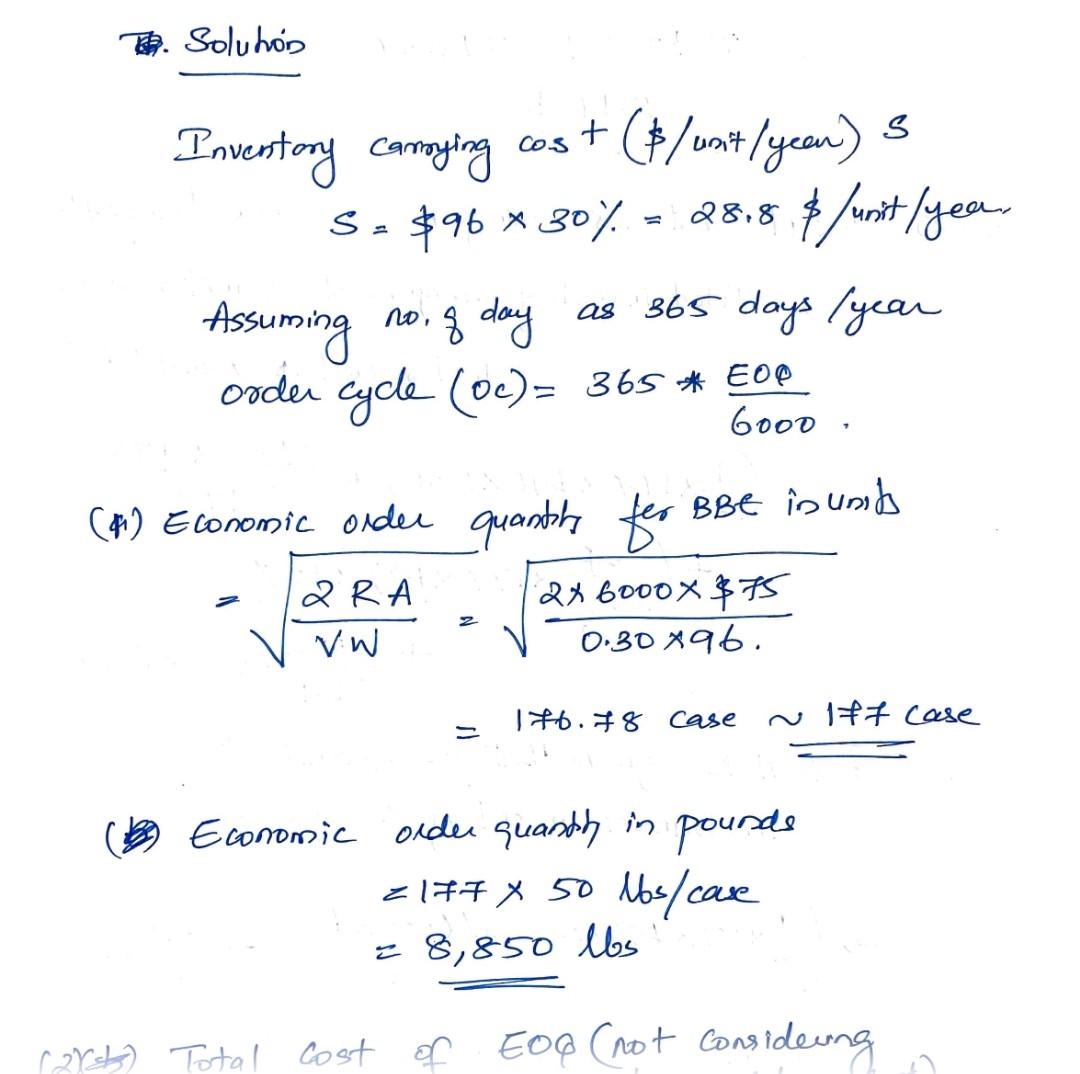 . Solution
Inventory carrying cost ($/unit/year) S
S = $96 × 30% = 28.8 $/unit/year
Assuming no. of day as 365 days /year
order cycle (OC) = 365 * EOQ / 6000 .
(1) Economic order quantity for BBE in units
= √(2RA / VW) = √(2 × 6000 × $75 / 0.30 × 96.)
= 176.78 case ~ 177 case
( Economic order quantity in pounds
= 177 × 50 lbs/case
= 8,850 lbs
(2) Total Cost of EOQ (not Considering